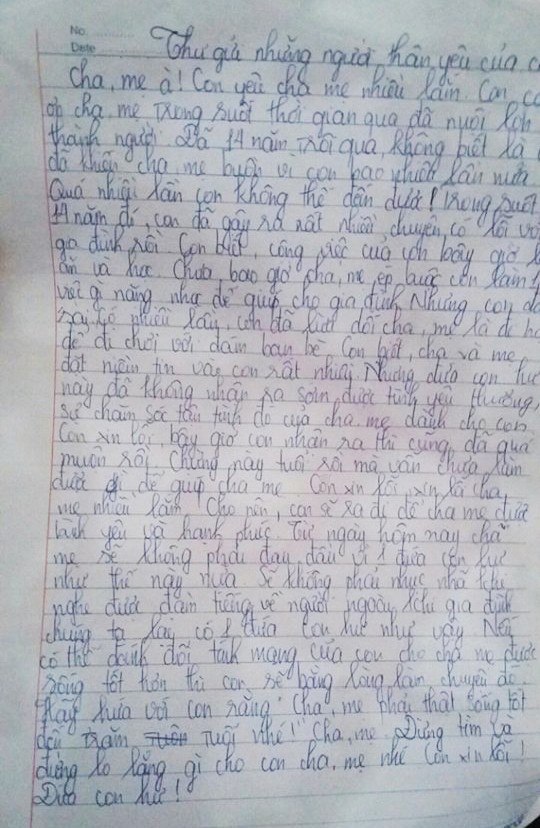 No.
Date
Thư gửi những người thân yêu của c
Cha, mẹ à! Con yêu cha mẹ nhiều lắm. Con
cha, mẹ trong suốt thời gian qua đã nuôi con
thành người. Đã 14 năm trôi qua, không biết là
đã khiến cha, mẹ buồn vì con bao nhiêu lần nữa
Quá nhiều lần con không thể đếm được! Trong suốt
14 năm đó, con đã gây ra rất nhiều chuyện có lỗi vớ
gia đình rồi. Con biết, công việc của con bây giờ
ăn và học. Chưa bao giờ cha, mẹ ép buộc con làm
việc gì nặng nhọc để giúp cho gia đình. Nhưng con
nhiều lần, con đã lừa dối cha, mẹ là đi
để đi chơi với đám bạn bè. Con biết, cha và mẹ
đặt niềm tin vào con rất nhiều. Nhưng đứa con hư
này đã không nhận ra sớm được tình yêu thương,
sự chăm sóc tận tình đó của cha, mẹ dành cho con.
Con xin lỗi, bây giờ con nhận ra thì cũng đã quá
muộn rồi. Chừng này tuổi rồi mà vẫn chưa làm
được gì để giúp cha mẹ. Con xin lỗi, xin lỗi cha,
mẹ nhiều lắm. Cho nên, con sẽ ra đi để cha mẹ được
bình yên và hạnh phúc. Từ ngày hôm nay cha
mẹ sẽ không phải đau đầu vì 1 đứa con hư
như thế này nữa. Sẽ không phải nhục nhã khi
nghe được đàm tiếng về người ngoài, khi gia đình
chúng ta lại có 1 đứa con hư như vậy. Nếu
có thể đánh đổi tính mạng của con cho cha mẹ được
sống tốt hơn thì con sẽ bằng lòng làm chuyện đó.
Hãy hứa với con rằng "Cha, mẹ phải thật sống tốt
đến trăm tuổi nhé!" Cha, mẹ. Đừng tìm và
đừng lo lắng gì cho con cha, mẹ nhé. Con xin lỗi!
Đứa con hư!